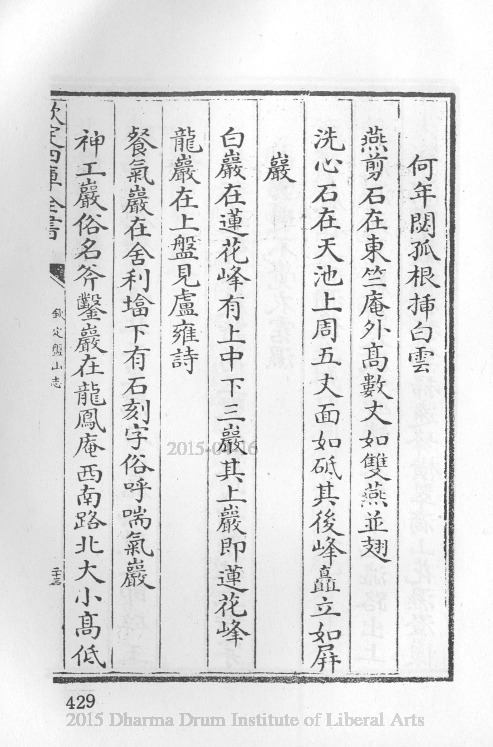 何年閟孤根揷白雲
燕剪石在東竺庵外髙數丈如雙燕並翅
洗心石在天池上周五丈面如砥其後峰矗立如屏
巖
白巖在蓮花峰有上中下三巖其上巖即蓮花峰
龍巖在上盤見盧雍詩
餐氣巖在舍利塔下有石刻字俗呼喘氣巖
神工巖俗名斧鑿巖在龍鳳庵西南路北大小髙低
欽定四庫全書
欽定盤山志
二十三
429
2015 Dharma Drum Institute of Liberal Arts